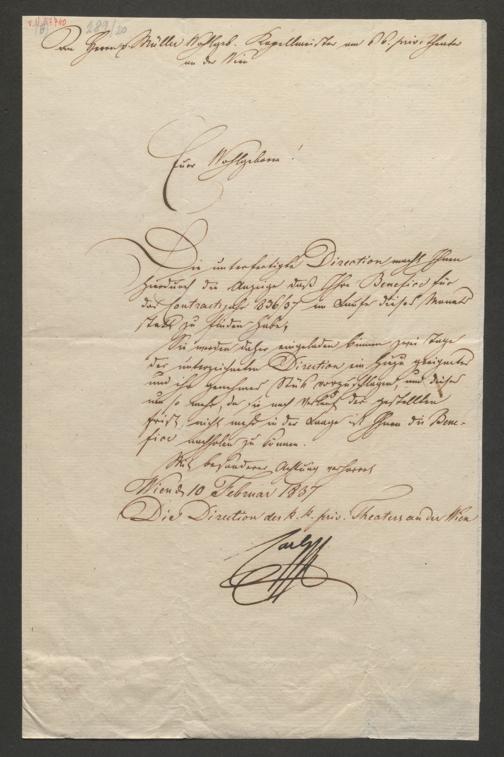 289/20
An Herrn v. Müller Wohlgeb. Kapellmeister am k. k. priv. Theater
an der Wien
Euer Wohlgeboren!
Die unterfertigte Direction macht Ihnen
hierdurch die Anzeige daß Ihre Benefice für
das Contractsjahr 836/37 im Laufe dieses Monats
statt zu finden habe,
Sie werden daher eingeladen binnen zwei Tage
der unterzeichneten Direction ein hiezu geeignetes
und ihr genehmes Stük vorzuschlagen, und dieses
um so mehr, da sie nach Verlauf der gestellten
Frist, nicht mehr in der Laage ist Ihnen die Bene-
fice nachholen zu können.
Mit besonderer Achtung verharret
Wien d 10 Februar 1837
Die Direction des k. k. priv. Theaters an der Wien
Carl